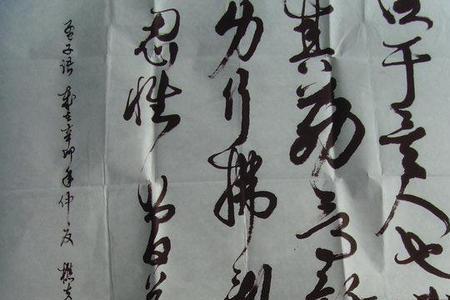 任于是人也
其筋骨
身行拂乱
忍性曾益
孟子语 岁在辛卯年仲夏